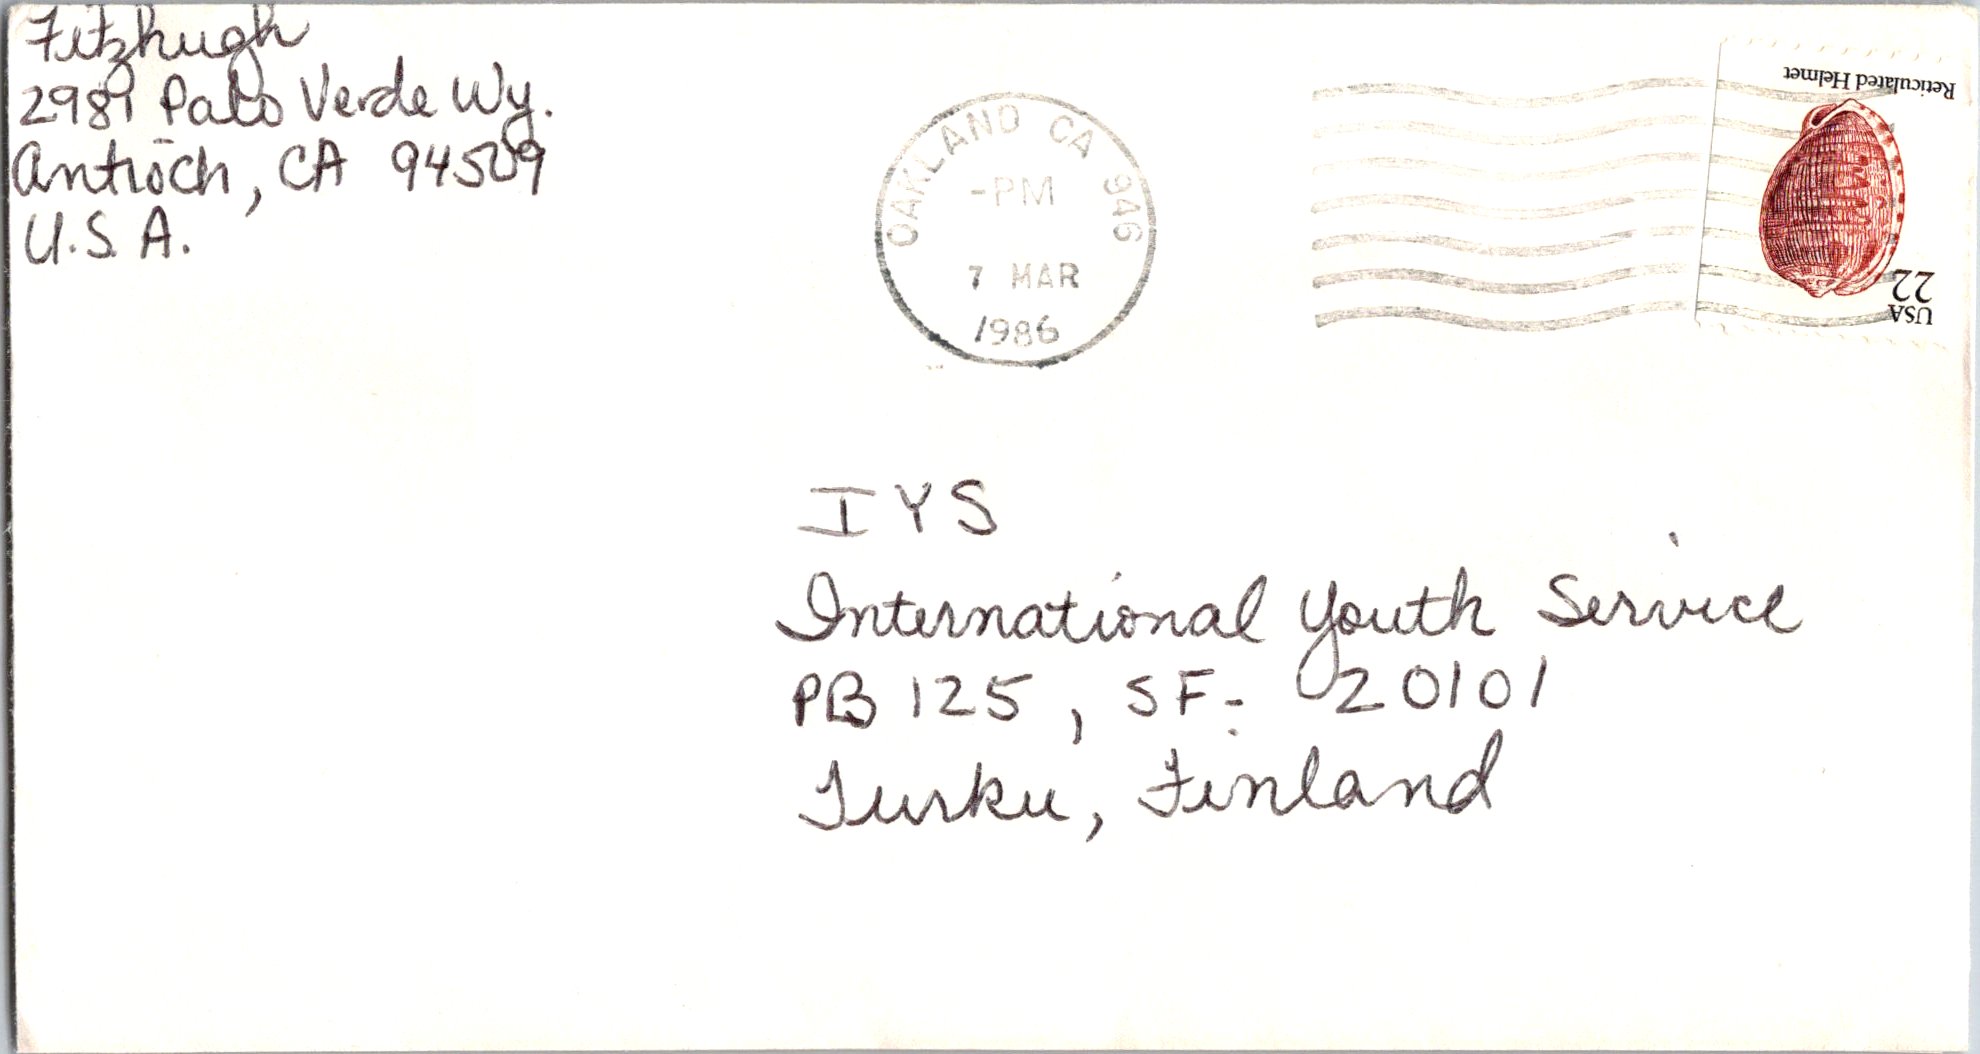 Fitzhugh
2981 Palo Verde Wy.
Antioch, CA 94509
U.S.A.
OAKLAND CA 946
-PM
7 MAR
1986
Reticulated Helmet
22
USA
IYS
International Youth Service
PB 125, SF- 20101
Turku, Finland